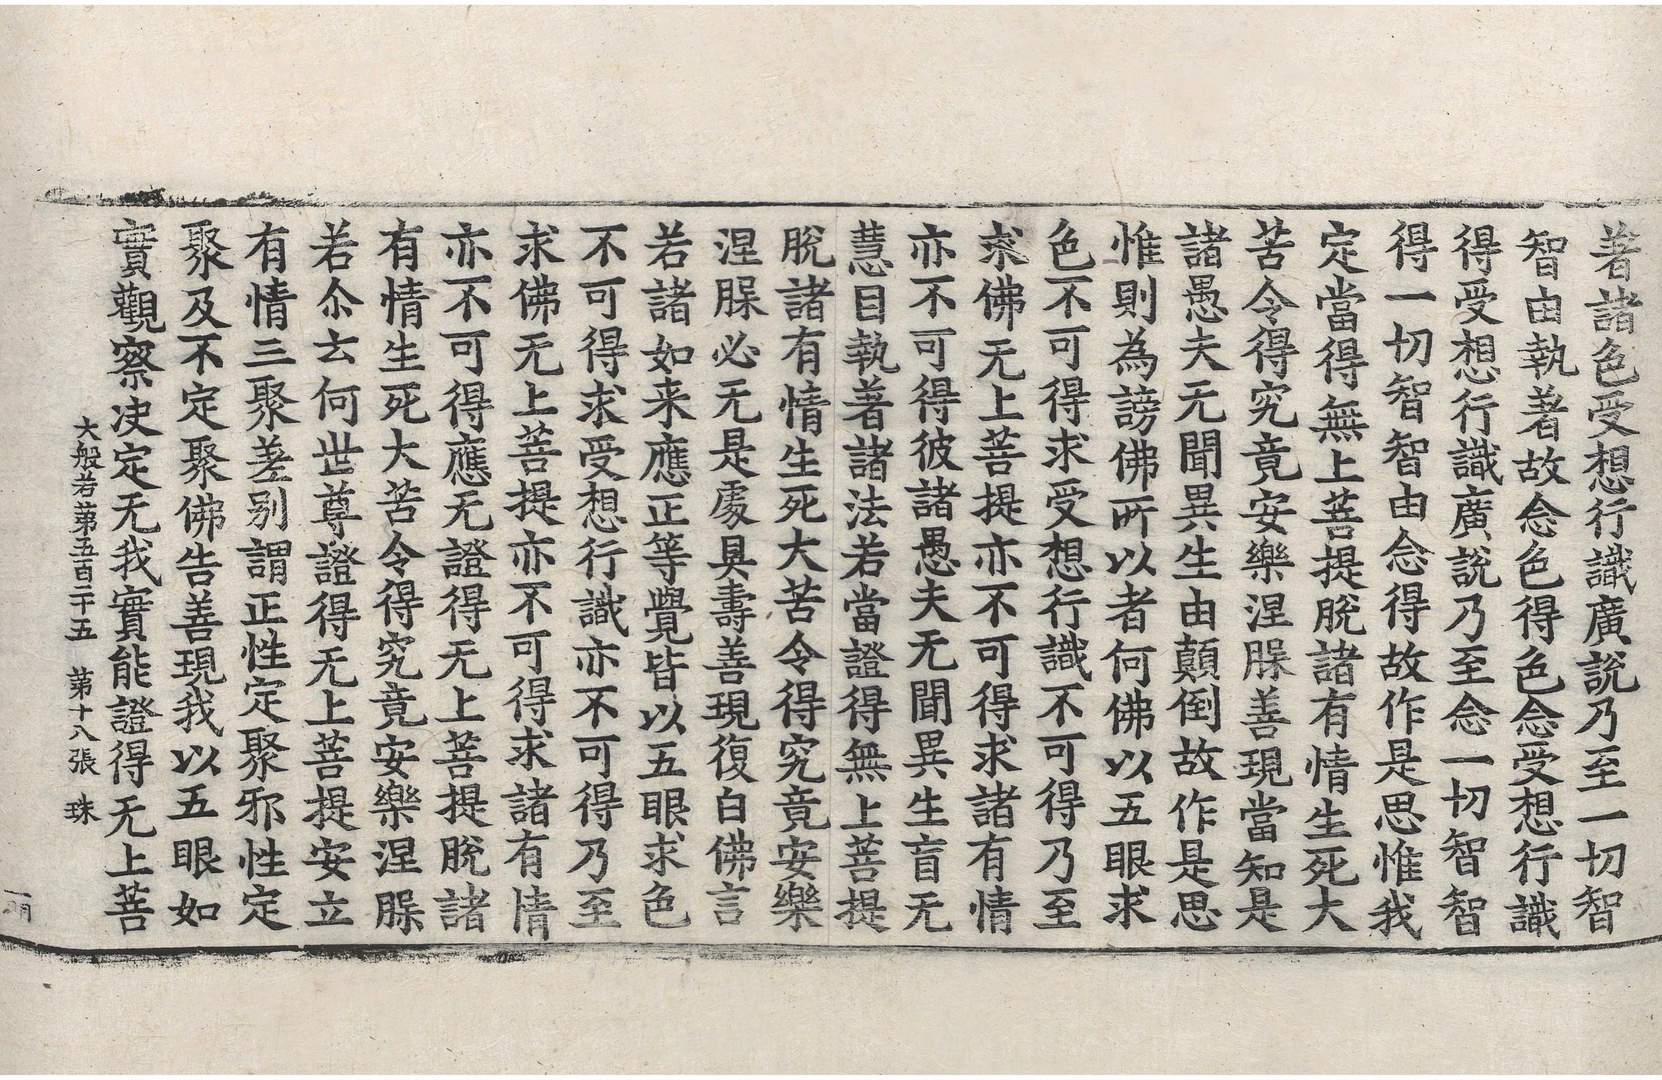 著諸色受想行識廣說乃至一切智
智由執著故念色得色念受想行識
得受想行識廣說乃至念一切智智
得一切智智由念得故作是思惟我
定當得無上菩提脫諸有情生死大
苦令得究竟安樂涅脲善現當知是
諸愚夫无聞異生由顛倒故作是思
惟則為謗佛所以者何佛以五眼求
色不可得求受想行識不可得乃至
求佛无上菩提亦不可得求諸有情
亦不可得彼諸愚夫无聞異生盲无
慧目執著諸法若當證得無上菩提
脫諸有情生死大苦令得究竟安樂
涅脲必无是處具壽善現復白佛言
若諸如来應正等覺皆以五眼求色
不可得求受想行識亦不可得乃至
求佛无上菩提亦不可得求諸有情
亦不可得應无證得无上菩提脫諸
有情生死大苦令得究竟安樂涅脲
若尒云何世尊證得无上菩提安立
有情三聚差别謂正性定聚邪性定
聚及不定聚佛告善現我以五眼如
實觀察决定无我實能證得无上菩
大般若苐五百二十五　苐十八張　珠